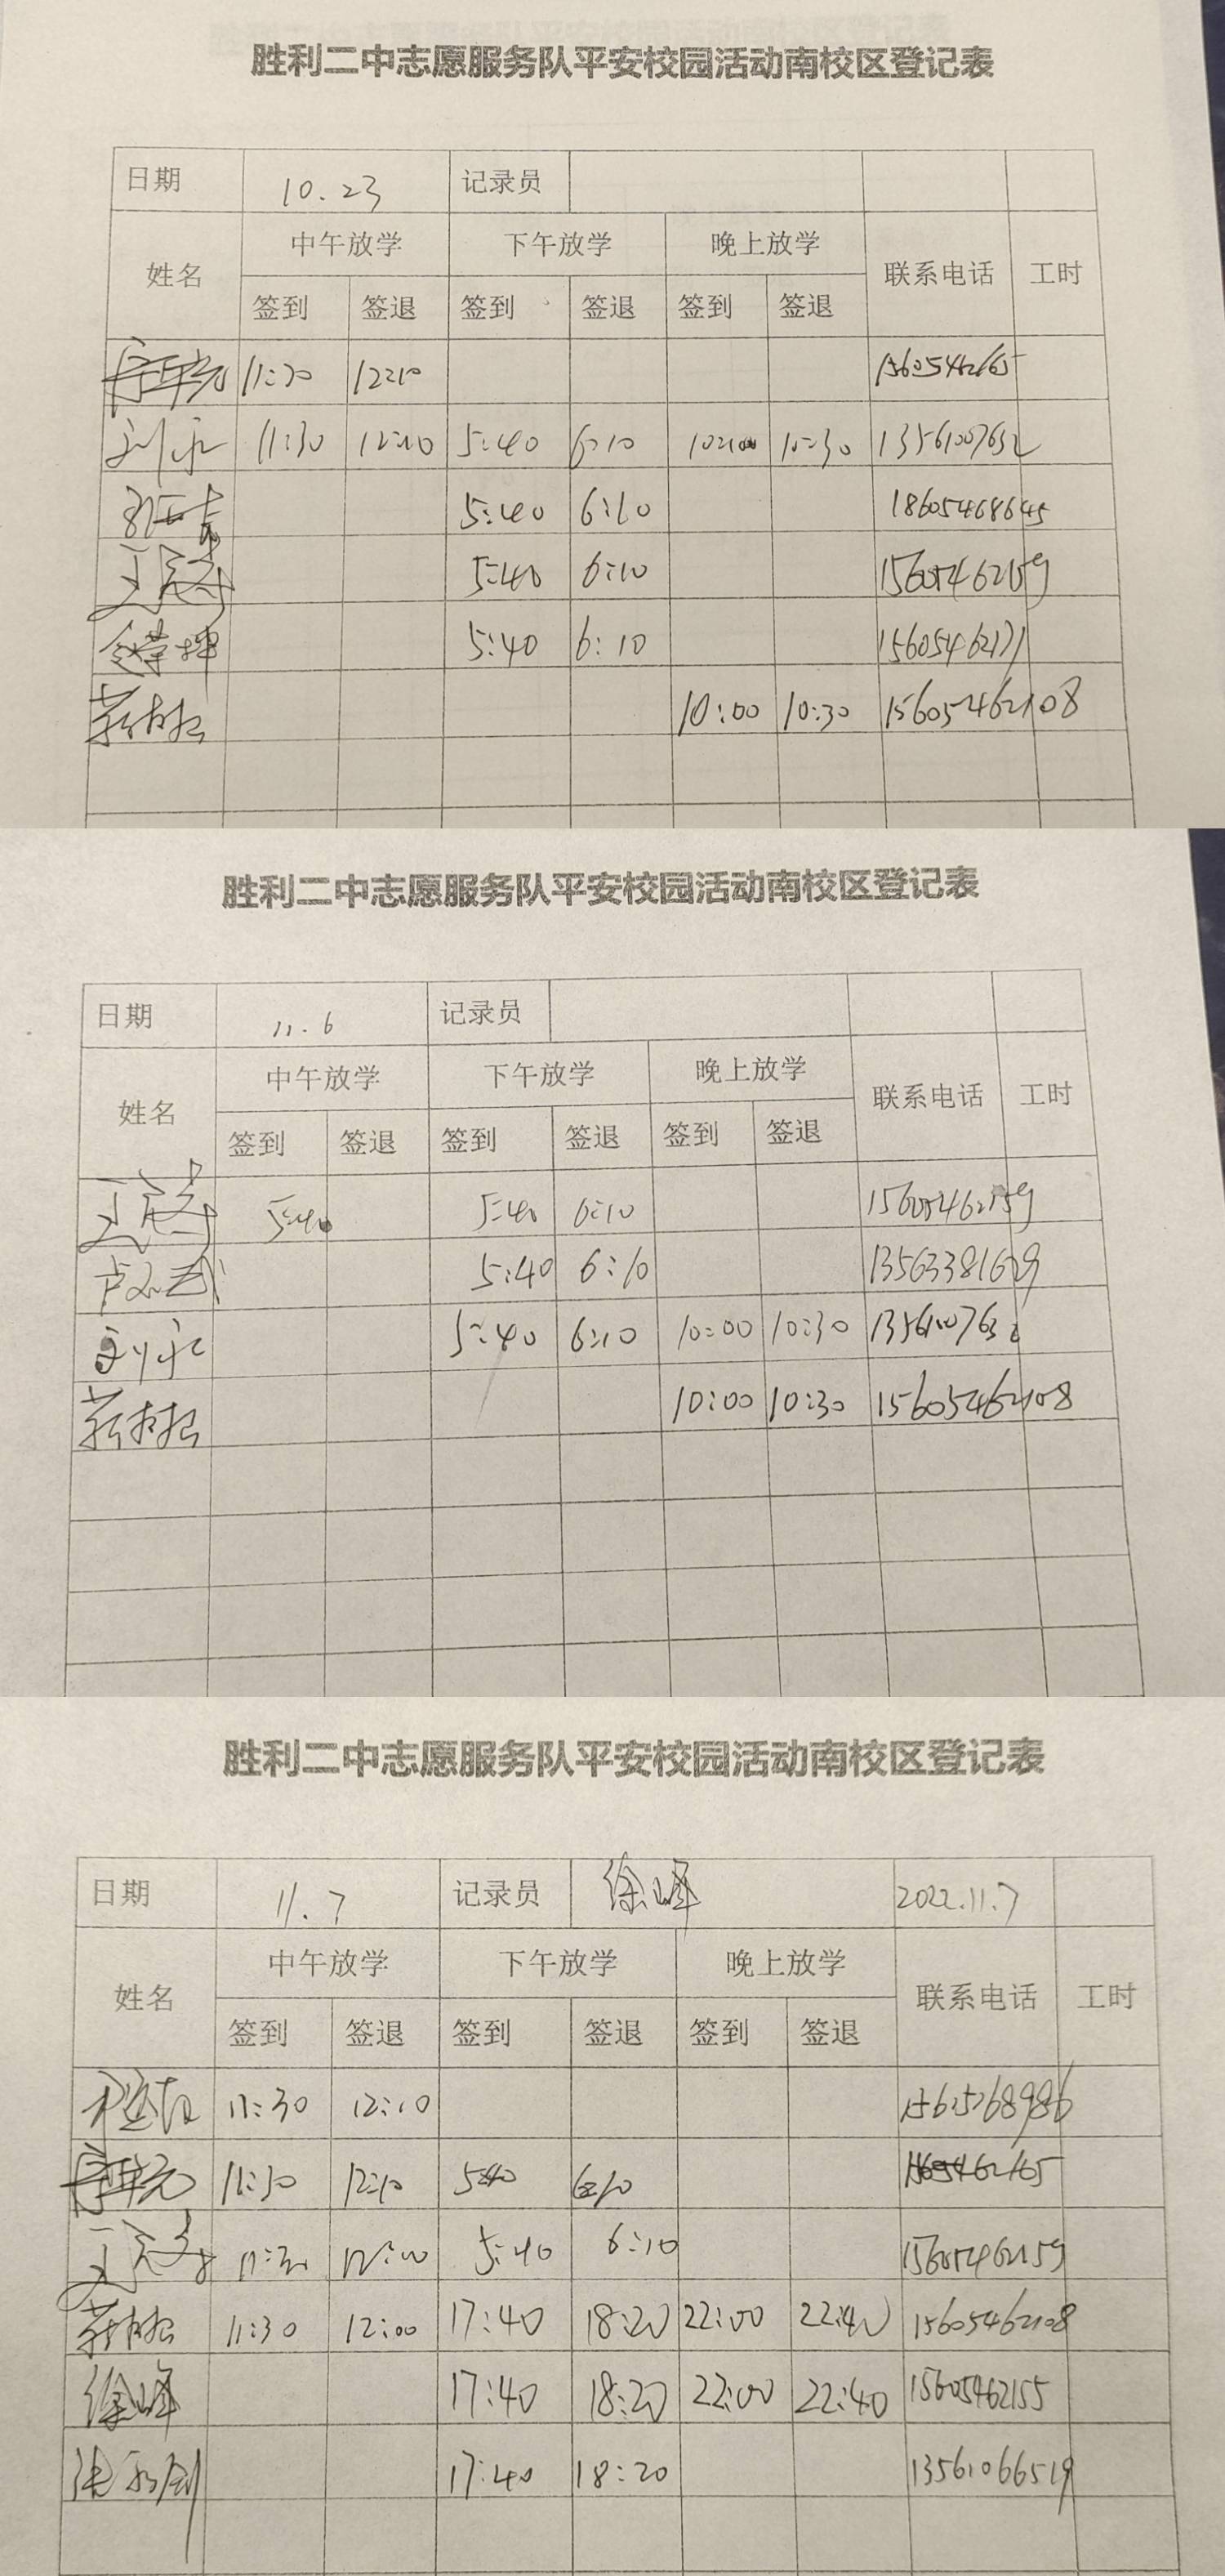 胜利二中志愿服务队平安校园活动南校区登记表
日期 10.23 记录员
姓名 中午放学 下午放学 晚上放学 联系电话 工时
签到 签退 签到 签退 签到 签退
11:30 12:10 15605462165
刘永 11:30 12:10 5:40 6:10 10:00 10:30 13561007632
5:40 6:10 18605468645
5:40 6:10 15605462159
5:40 6:10 15605462171
10:00 10:30 15605462108
胜利二中志愿服务队平安校园活动南校区登记表
日期 11.6 记录员
姓名 中午放学 下午放学 晚上放学 联系电话 工时
签到 签退 签到 签退 签到 签退
5:40 5:40 6:10 15605462159
5:40 6:10 13563381629
刘永 5:40 6:10 10:00 10:30 13561007632
10:00 10:30 15605462108
胜利二中志愿服务队平安校园活动南校区登记表
日期 11.7 记录员 徐峰 2022.11.7
姓名 中午放学 下午放学 晚上放学 联系电话 工时
签到 签退 签到 签退 签到 签退
11:30 12:10
11:30 12:10 5:40 6:10 15605462165
11:30 12:00 5:40 6:10 15605462159
11:30 12:00 17:40 18:20 22:00 22:40 15605462108
徐峰 17:40 18:20 22:00 22:40 15605462155
17:40 18:20 13561066519